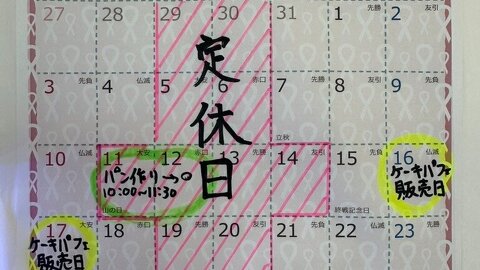 27 28 29 30 31 1 先勝 2 友引
定休日
3 先負 4 仏滅 5 大安 6 赤口 7 先勝 8 友引 9 先負
立秋
10 仏滅 11 大安 12 赤口 13 先勝 14 友引 15 先負 16 仏滅
パン作り→○
10:00~11:30
山の日
終戦記念日
ケーキパフェ
販売日
17 大安 18 赤口 19 先勝 20 友引 21 先負 22 仏滅 23
ケーキパフェ
販売日